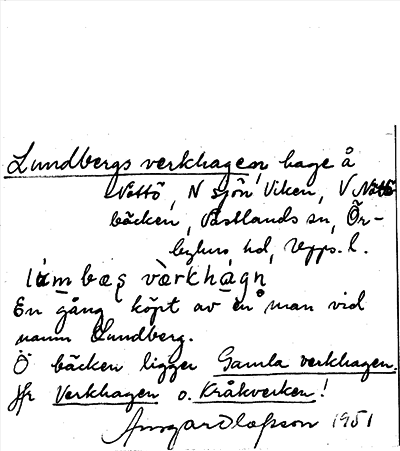 Lundbergs verkhagen, hage å
Nöttö, N sjön Viken, V Nöttö
bäcken, Västlands sn, Ör-
byhus hd, Upps. l.
lùmbæs værkhàgn
En gång köpt av en man vid
namn Lundberg.
Ö bäcken ligger Gamla verkhagen.
Jfr Verkhagen o. Kråkverken!
Ansgar Olofsson 1951